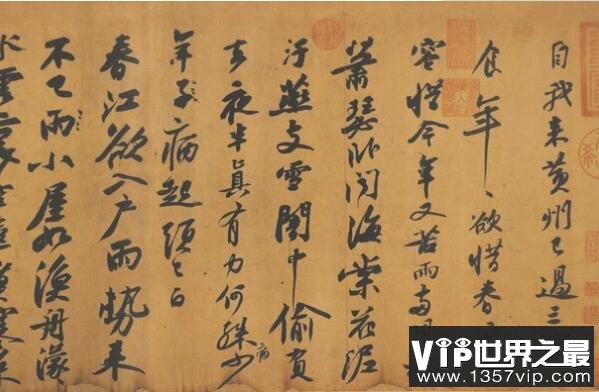 自我来黄州已過三
食年〻欲惜春
容惜今年又苦雨兩
蕭瑟卧聞海棠花泥
汙燕支雪闇中偷負
去夜半真有力何殊少
病
年子病起頭已白
春江欲入户雨勢来
不已雨小屋如漁舟濛
水雲裏
VIP世界之最
www.1357vip.com